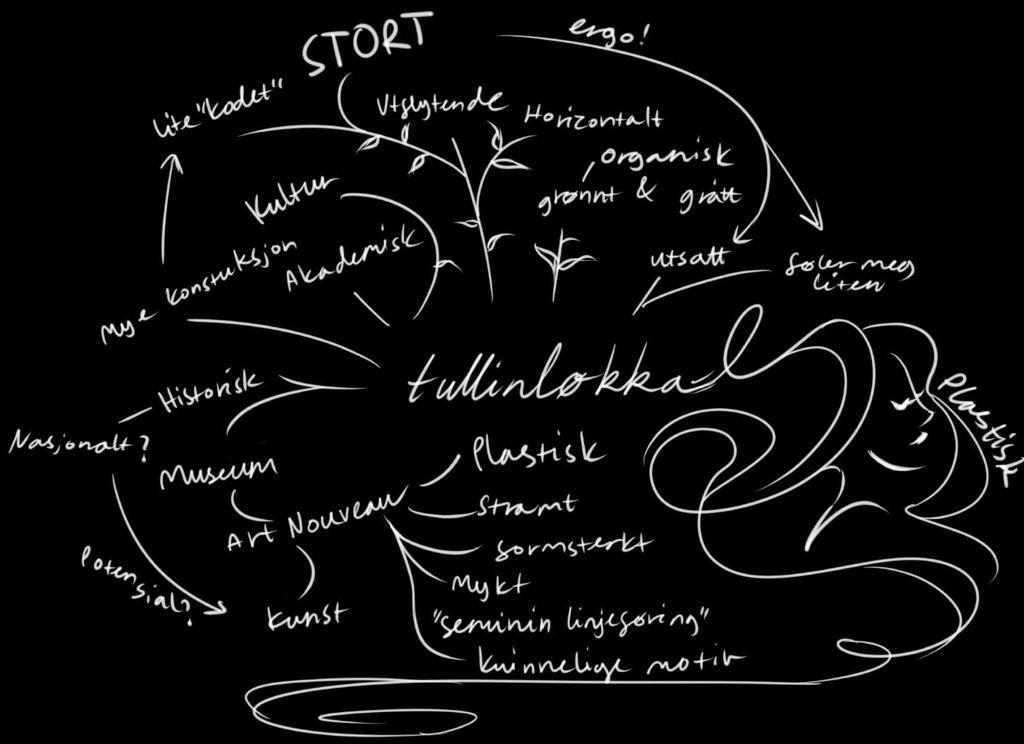 STORT
ergo!
lite "kodet"
Utflytende
Horizontalt
organisk
grønnt & grått
Kultur
Akademisk
utsatt
føler meg
liten
Mye Konstuksjon
tullinløkka
Plastisk
Historisk
Nasjonalt?
Museum
Art Nouveau
Plastisk
Stramt
formsterkt
Mykt
"feminin linjeføring"
kvinnelige motiv
Poten-
sial?
kunst